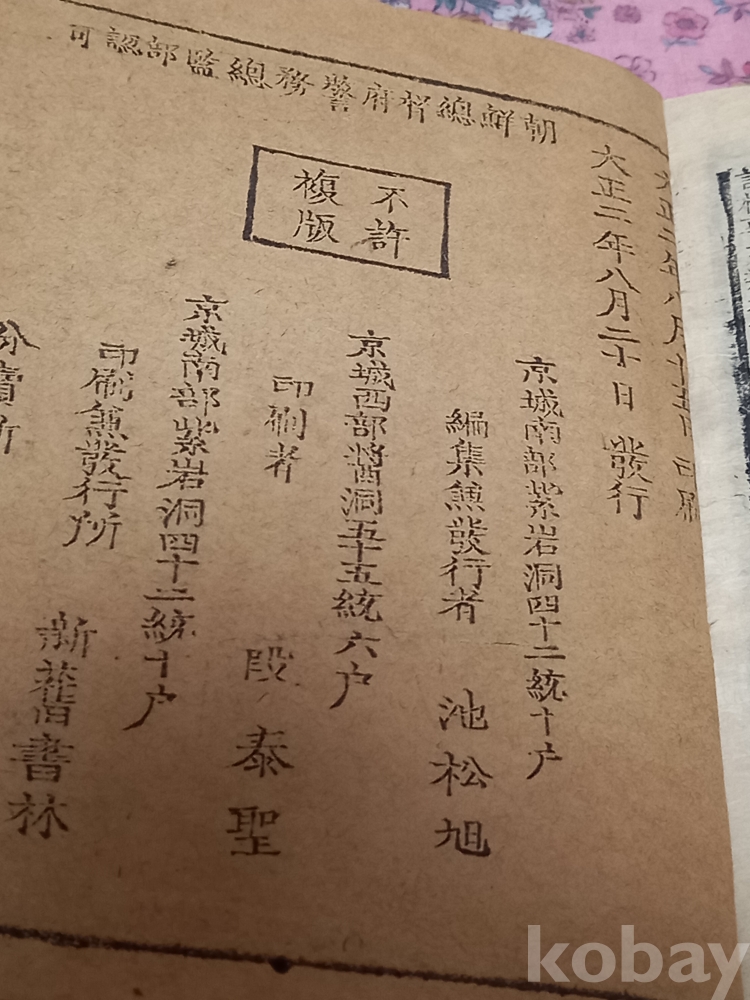 朝鮮總督府警務總監部認可
大正二年八月十五日 印刷
大正二年八月二十日 發行
不許
複版
京城南部紫岩洞四十二統十户
編集兼發行者 池松旭
京城西部醬洞五十五統六户
印刷者 段泰聖
京城南部紫岩洞四十二統十户
印刷兼發行所 新舊書林
分賣所
kobay